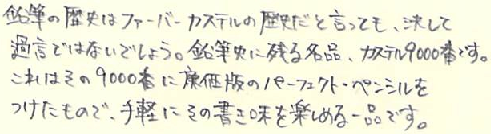 鉛筆の歴史はファーバーカステルの歴史だと言っても、決して
過言ではないでしょう。鉛筆史に残る名品、カステル9000番です。
これはその9000番に廉価版のパーフェクト・ペンシルを
つけたもので、手軽にその書き味を楽しめる一品です。